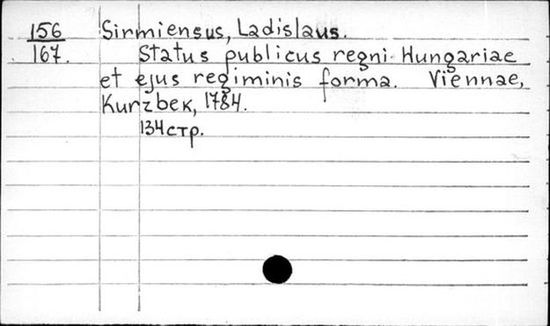 156 Sirmiensus, Ladislaus.
167. Status publicus regni Hungariae
et ejus regiminis forma. Viennae,
Kurzbek, 1784.
134 стр.